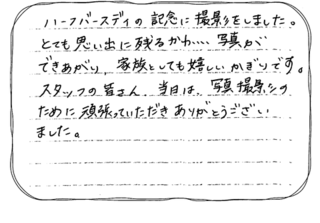 ハーフバースディの記念に撮影をしました。
とても思い出に残るかわ… 写真が
できあがり、家族としても嬉しいかぎりです。
スタッフの皆さん 当日は、写真撮影の
ために頑張っていただきありがとうござい
ました。